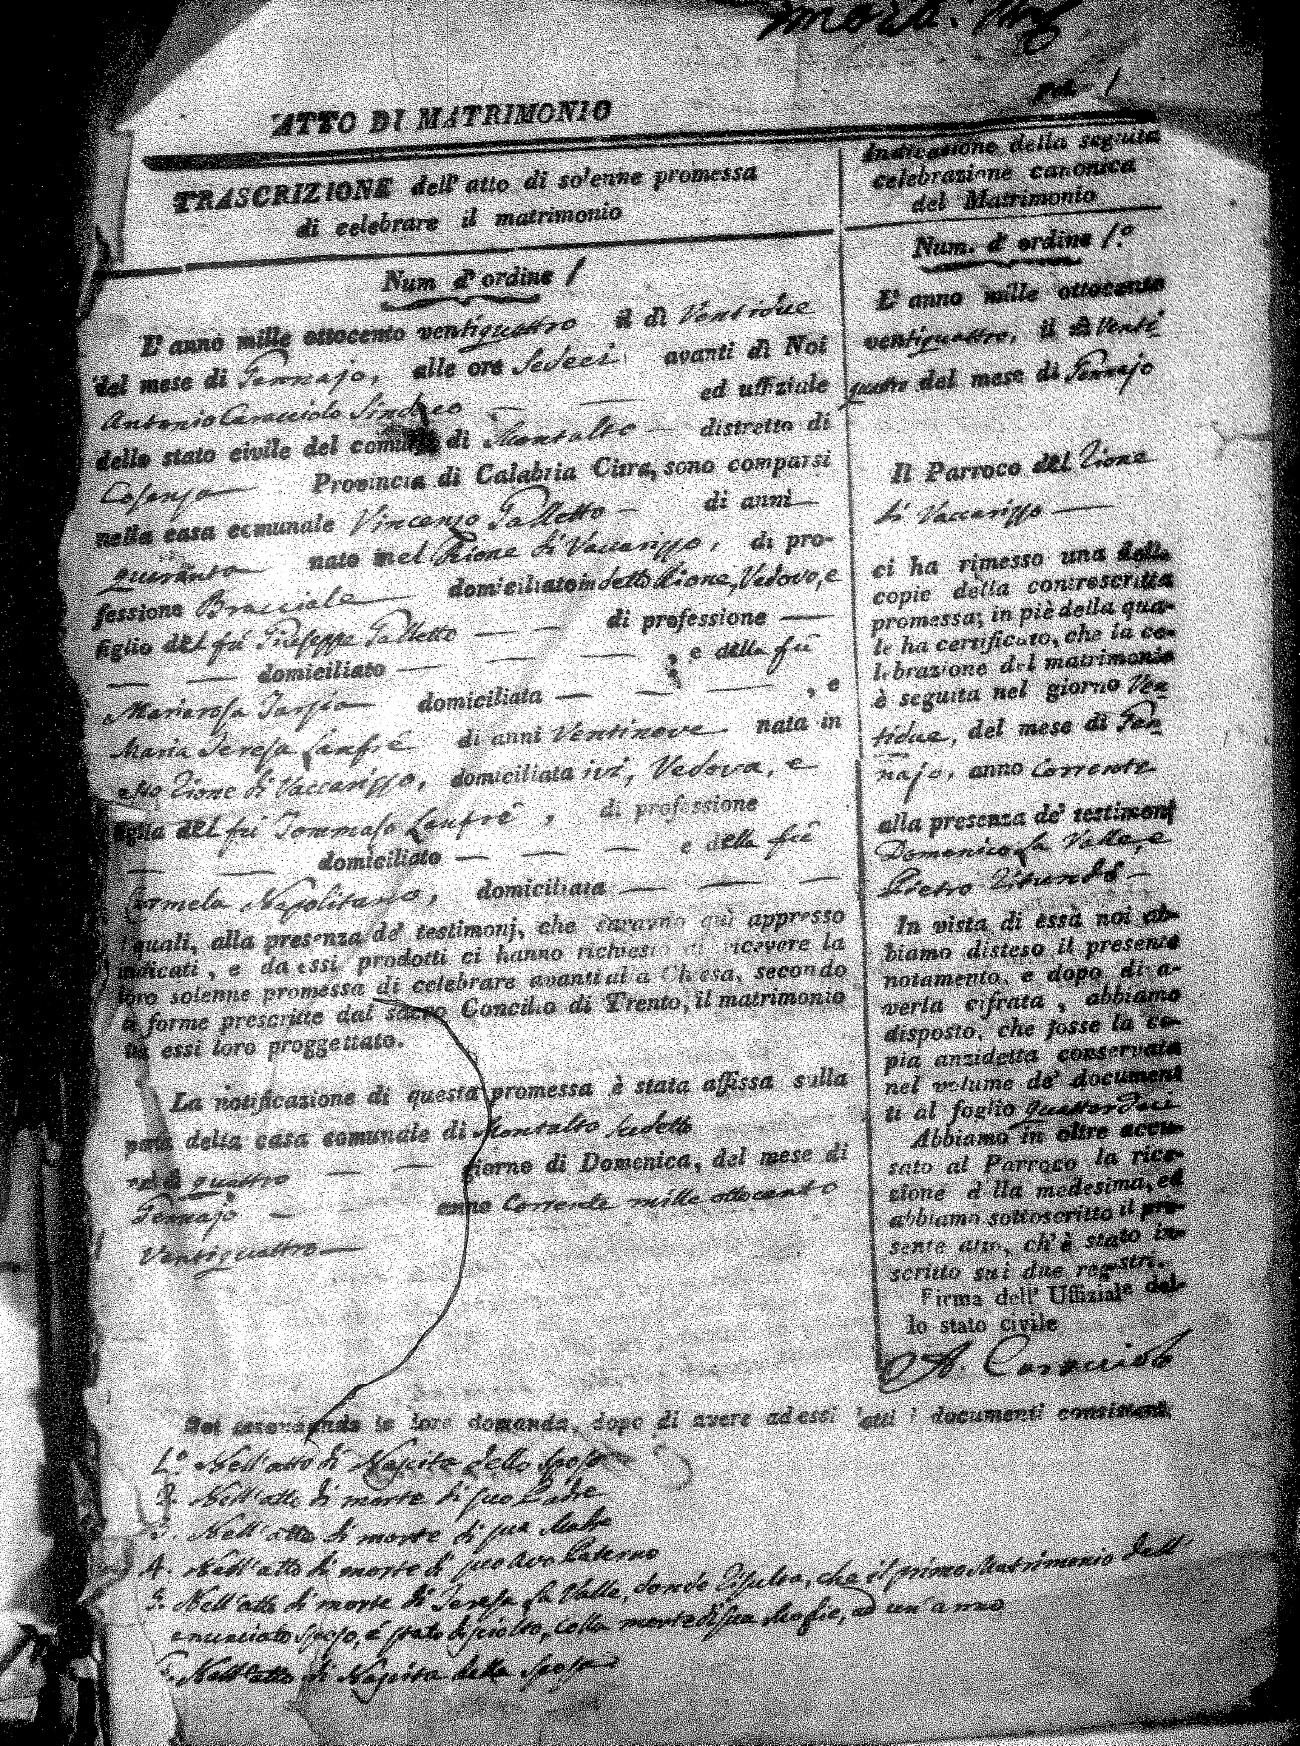 ATTO DI MATRIMONIO
TRASCRIZIONE dell' atto di solenne promessa
di celebrare il matrimonio
Num d' ordine 1
L' anno mille ottocento ventiquattro il dì Ventidue
del mese di Gennajo, alle ore Sedeci avanti di Noi
Antonio Caracciolo Sindaco ed uffiziale
dello stato civile del comune di Montalto distretto di
Cosenza Provincia di Calabria Citra, sono comparsi
nella casa comunale Vincenzo Galletto di anni
quaranta nato nel Rione di Vaccarizzo, di pro-
fessione Bracciale domiciliato in detto Rione, Vedovo, e
figlio del fù Giuseppe Galletto di professione
domiciliato , e della fù
Mariarosa domiciliata , e
Maria Teresa Lanfrè di anni Ventinove nata in
Rione di Vaccarizzo, domiciliata ivi, Vedova, e
figlia del fù Tommaso Lanfrè , di professione
domiciliato e della fù
Carmela Napolitano, domiciliata
I quali, alla presenza de' testimonj, che saranno quì appresso
indicati, e da essi prodotti ci hanno richiesto di ricevere la
loro solenne promessa di celebrare avanti alla Chiesa, secondo
le forme prescritte dal sacro Concilio di Trento, il matrimonio
tra essi loro proggettato.
La notificazione di questa promessa è stata affissa sulla
porta della casa comunale di Montalto sudetto
nel dì quattro giorno di Domenica, del mese di
Gennajo anno Corrente mille ottocento
Ventiquattro
Indicazione della seguita
celebrazione canonica
del Matrimonio
Num. d' ordine 1.º
L' anno mille ottocento
ventiquattro, il dì Venti
quattro del mese di Gennajo
Il Parroco del Rione
di Vaccarizzo
ci ha rimesso una delle
copie della controscritta
promessa; in piè della qua-
le ha certificato, che la ce-
lebrazione del matrimonio
è seguita nel giorno Ven
tidue, del mese di Gen
najo, anno Corrente
alla presenza de' testimonj
Domenico La Valle, e
Pietro
In vista di essa noi ab-
biamo disteso il presente
notamento, e dopo di a-
verla cifrata, abbiamo
disposto, che fosse la co-
pia anzidetta conservata
nel volume de' document
ti al foglio quattordeci
Abbiamo in oltre accu-
sato al Parroco la rice-
zione della medesima, ed
abbiamo sottoscritto il pre-
sente atto, ch' è stato in-
scritto sui due registri.
Firma dell' Uffiziale del-
lo stato civile
A. Caracciolo
Noi secondando la loro domanda, dopo di avere ad essi letti i documenti consistenti,
1.º Nell' atto di Nascita dello Sposo
2. Nell' atto di morte di suo Padre
3. Nell' atto di morte di sua Madre
4. Nell' atto di morte di suo Avo Paterno
5. Nell' atto di morte di Teresa La Valle, donde risulta, che il primo Matrimonio dell
enunciato sposo, è stato disciolto, colla morte di sua Moglie, ad un' anno
6. Nell' atto di Nascita della Sposa